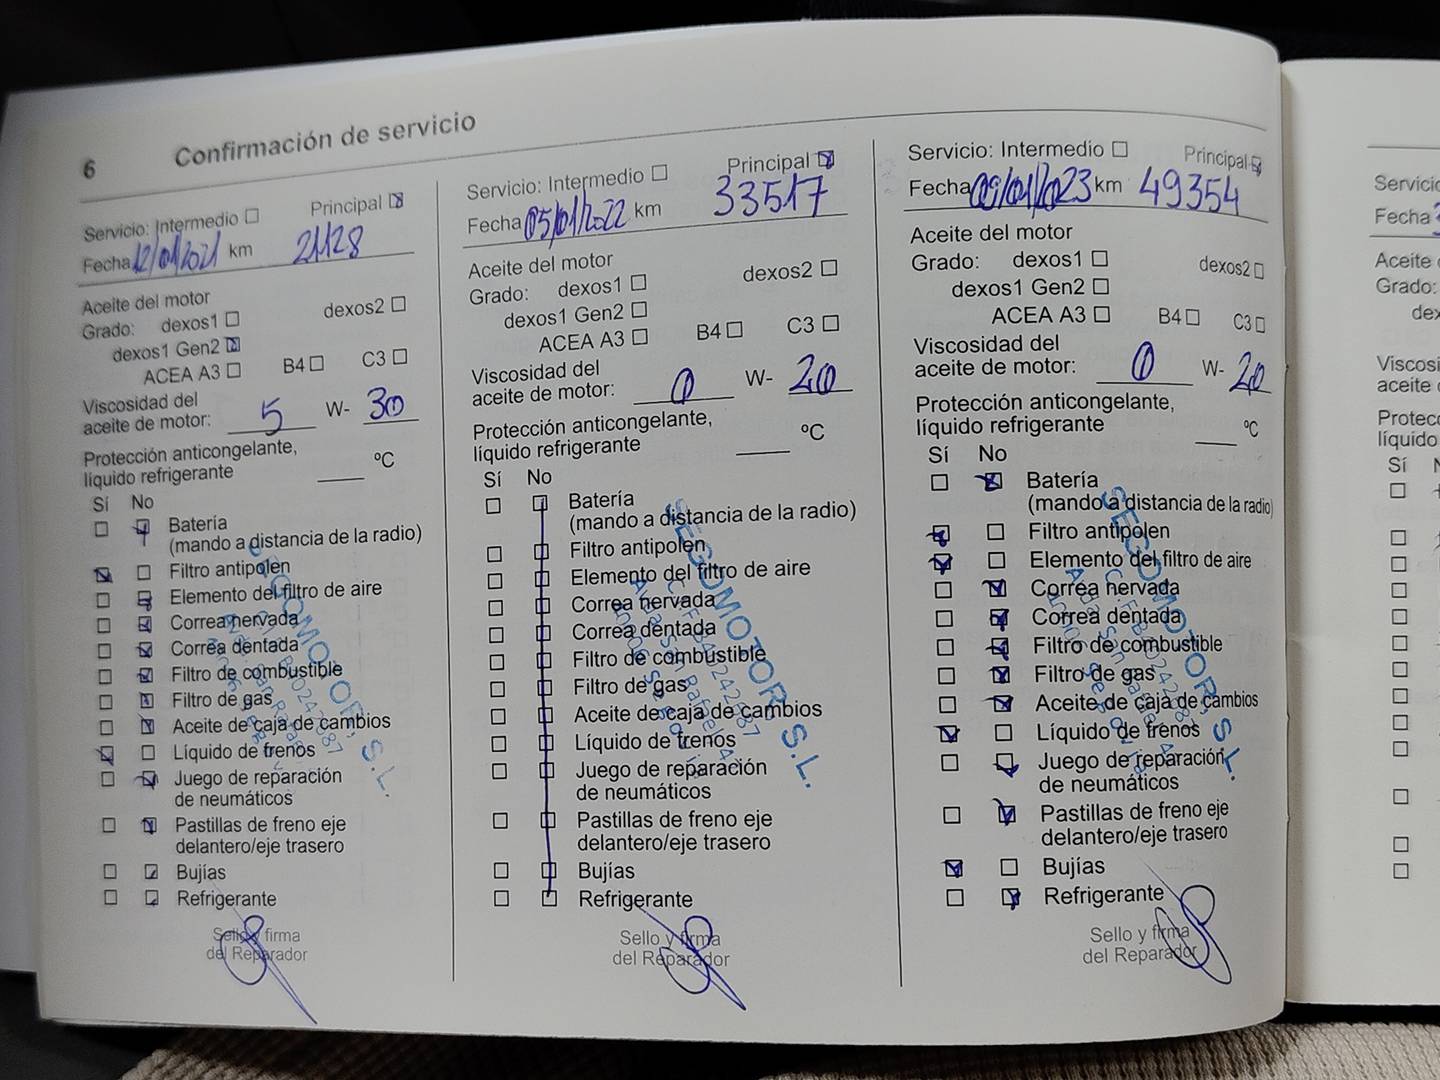 6 Confirmación de servicio
Servicio: Intermedio ☐ Principal ☒
Fecha 12/01/2021 km 21128
Aceite del motor
Grado: dexos1 ☐ dexos2 ☐
dexos1 Gen2 ☒
ACEA A3 ☐ B4 ☐ C3 ☐
Viscosidad del
aceite de motor: 5 W- 30
Protección anticongelante,
líquido refrigerante ____ ºC
Sí No
☐ ☒ Batería
(mando a distancia de la radio)
☒ ☐ Filtro antipolen
☐ ☒ Elemento del filtro de aire
☐ ☒ Correa nervada
☐ ☒ Correa dentada
☐ ☒ Filtro de combustible
☐ ☒ Filtro de gas
☐ ☒ Aceite de caja de cambios
☒ ☐ Líquido de frenos
☐ ☒ Juego de reparación
de neumáticos
☐ ☒ Pastillas de freno eje
delantero/eje trasero
☐ ☒ Bujías
☐ ☒ Refrigerante
SEGOMOTOR, S.L.
Sello y firma
del Reparador
Servicio: Intermedio ☐ Principal ☒
Fecha 05/01/2022 km 33517
Aceite del motor
Grado: dexos1 ☐ dexos2 ☐
dexos1 Gen2 ☐
ACEA A3 ☐ B4 ☐ C3 ☐
Viscosidad del
aceite de motor: 0 W- 20
Protección anticongelante,
líquido refrigerante ____ ºC
Sí No
☐ ☒ Batería
(mando a distancia de la radio)
☐ ☒ Filtro antipolen
☐ ☒ Elemento del filtro de aire
☐ ☒ Correa nervada
☐ ☒ Correa dentada
☐ ☒ Filtro de combustible
☐ ☒ Filtro de gas
☐ ☒ Aceite de caja de cambios
☐ ☒ Líquido de frenos
☐ ☒ Juego de reparación
de neumáticos
☐ ☒ Pastillas de freno eje
delantero/eje trasero
☐ ☒ Bujías
☐ ☒ Refrigerante
SEGOMOTOR, S.L.
Sello y firma
del Reparador
Servicio: Intermedio ☐ Principal ☒
Fecha 09/01/2023 km 49354
Aceite del motor
Grado: dexos1 ☐ dexos2 ☐
dexos1 Gen2 ☐
ACEA A3 ☐ B4 ☐ C3 ☐
Viscosidad del
aceite de motor: 0 W- 20
Protección anticongelante,
líquido refrigerante ____ ºC
Sí No
☐ ☒ Batería
(mando a distancia de la radio)
☒ ☐ Filtro antipolen
☒ ☐ Elemento del filtro de aire
☐ ☒ Correa nervada
☐ ☒ Correa dentada
☐ ☒ Filtro de combustible
☐ ☒ Filtro de gas
☐ ☒ Aceite de caja de cambios
☒ ☐ Líquido de frenos
☐ ☒ Juego de reparación
de neumáticos
☐ ☒ Pastillas de freno eje
delantero/eje trasero
☒ ☐ Bujías
☐ ☒ Refrigerante
SEGOMOTOR, S.L.
Sello y firma
del Reparador
Fecha
Aceite
Grado:
aceite
líquido
Sí